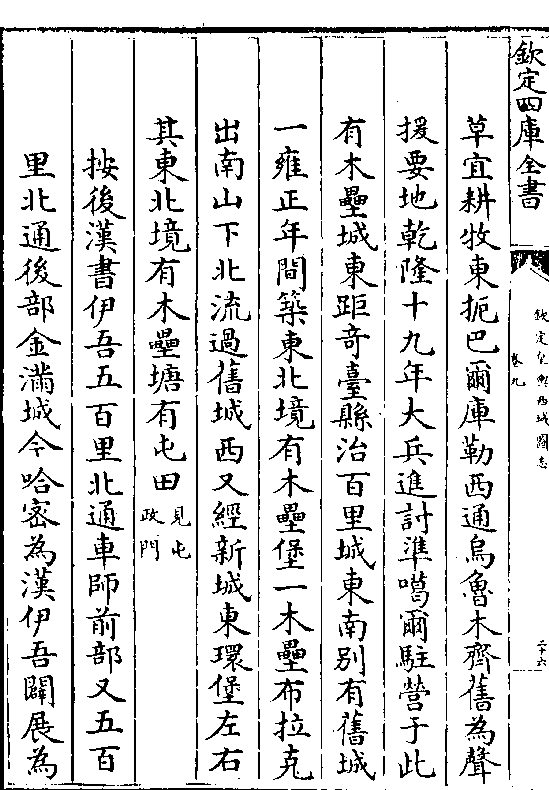 欽定四庫全書
欽定皇輿西域圖志
卷九
二十六
草宜耕牧東扼巴爾庫勒西通烏魯木齊舊為聲
援要地乾隆十九年大兵進討準噶爾駐營于此
有木壘城東距奇臺縣治百里城東南別有舊城
一雍正年間築東北境有木壘堡一木壘布拉克
出南山下北流過舊城西又經新城東環堡左右
其東北境有木壘塘有屯田
見屯
政門
按後漢書伊吾五百里北通車師前部又五百
里北通後部金滿城今哈密為漢伊吾闢展為